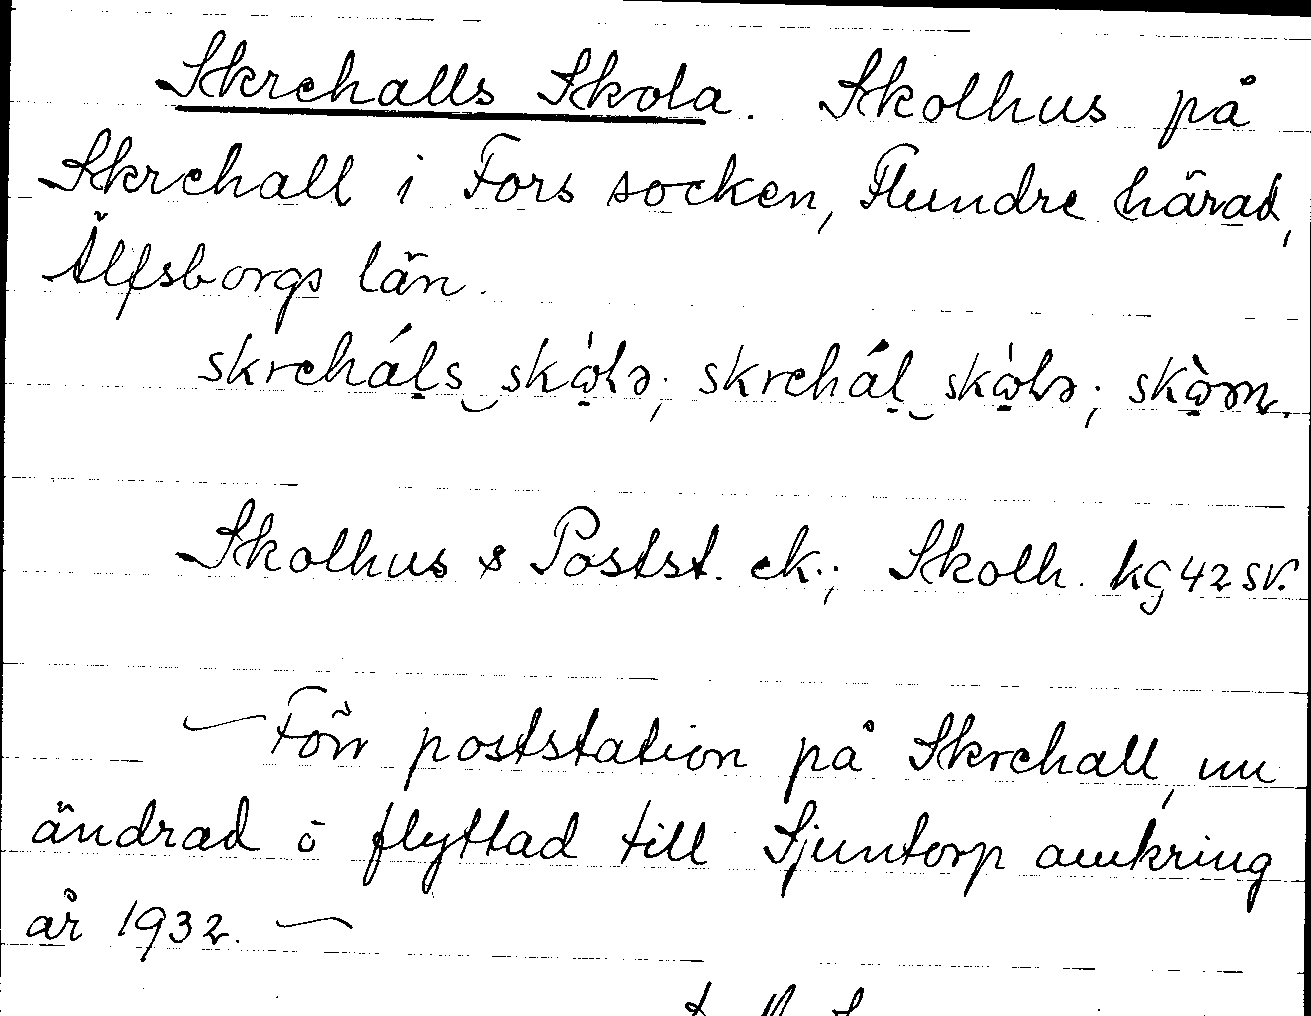 Skrehalls Skola. Skolhus på
Skrehall i Fors socken, Flundre härad,
Älfsborgs län.
skrehál̠s‿skὼlə; skrehál̠‿skὼlə; skὼən.
Skolhus & Postst. ek.; Skolh. kg 42 sv.
— Förr poststation på Skrehall, nu
ändrad o flyttad till Sjuntorp omkring
år 1932. —